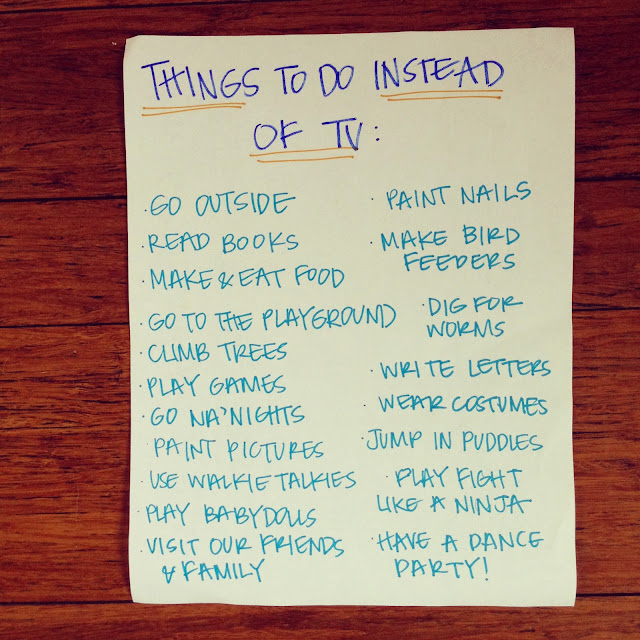 THINGS TO DO INSTEAD
OF TV:
· GO OUTSIDE
· READ BOOKS
· MAKE & EAT FOOD
· GO TO THE PLAYGROUND
· CLIMB TREES
· PLAY GAMES
· GO NA'NIGHTS
· PAINT PICTURES
· USE WALKIE TALKIES
· PLAY BABYDOLLS
· VISIT OUR FRIENDS
& FAMILY
· PAINT NAILS
· MAKE BIRD
FEEDERS
· DIG FOR
WORMS
· WRITE LETTERS
· WEAR COSTUMES
· JUMP IN PUDDLES
· PLAY FIGHT
LIKE A NINJA
· HAVE A DANCE
PARTY!